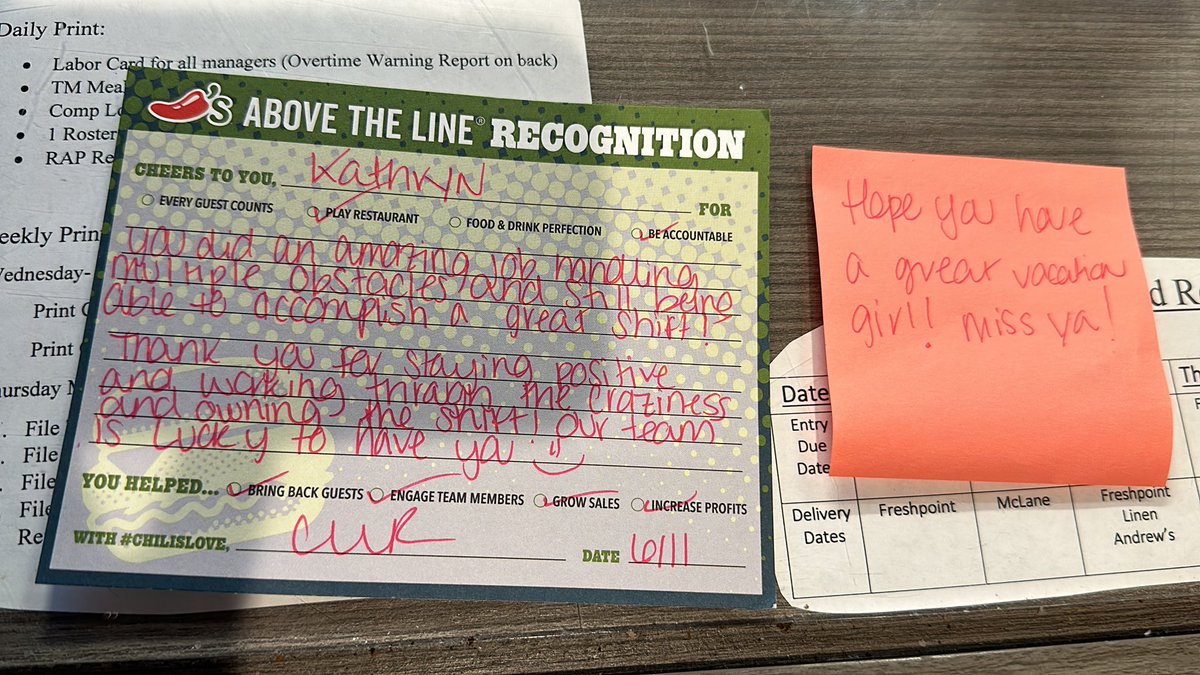 Daily Print:
Labor Card for all managers (Overtime Warning Report on back)
TM Mea
Comp Lo
1 Roster
RAP Re
eekly Prin
Wednesday-
Print
Print
ursday
File
File
File
File
Re
'S ABOVE THE LINE® RECOGNITION
CHEERS TO YOU, Kathryn FOR
EVERY GUEST COUNTS PLAY RESTAURANT FOOD & DRINK PERFECTION BE ACCOUNTABLE
you did an amazing job handling
multiple obstacles and still being
able to accomplish a great shift!
Thank you for staying positive
and working through the craziness
and owning the shift! Our team
is lucky to have you :)
YOU HELPED... BRING BACK GUESTS ENGAGE TEAM MEMBERS GROW SALES INCREASE PROFITS
WITH #CHILISLOVE, DATE 6/11
Hope you have
a great vacation
girl!! miss ya!
d Re
Date
Th
Entry
Due
Date
Delivery
Dates
Freshpoint
McLane
Freshpoint
Linen
Andrew's